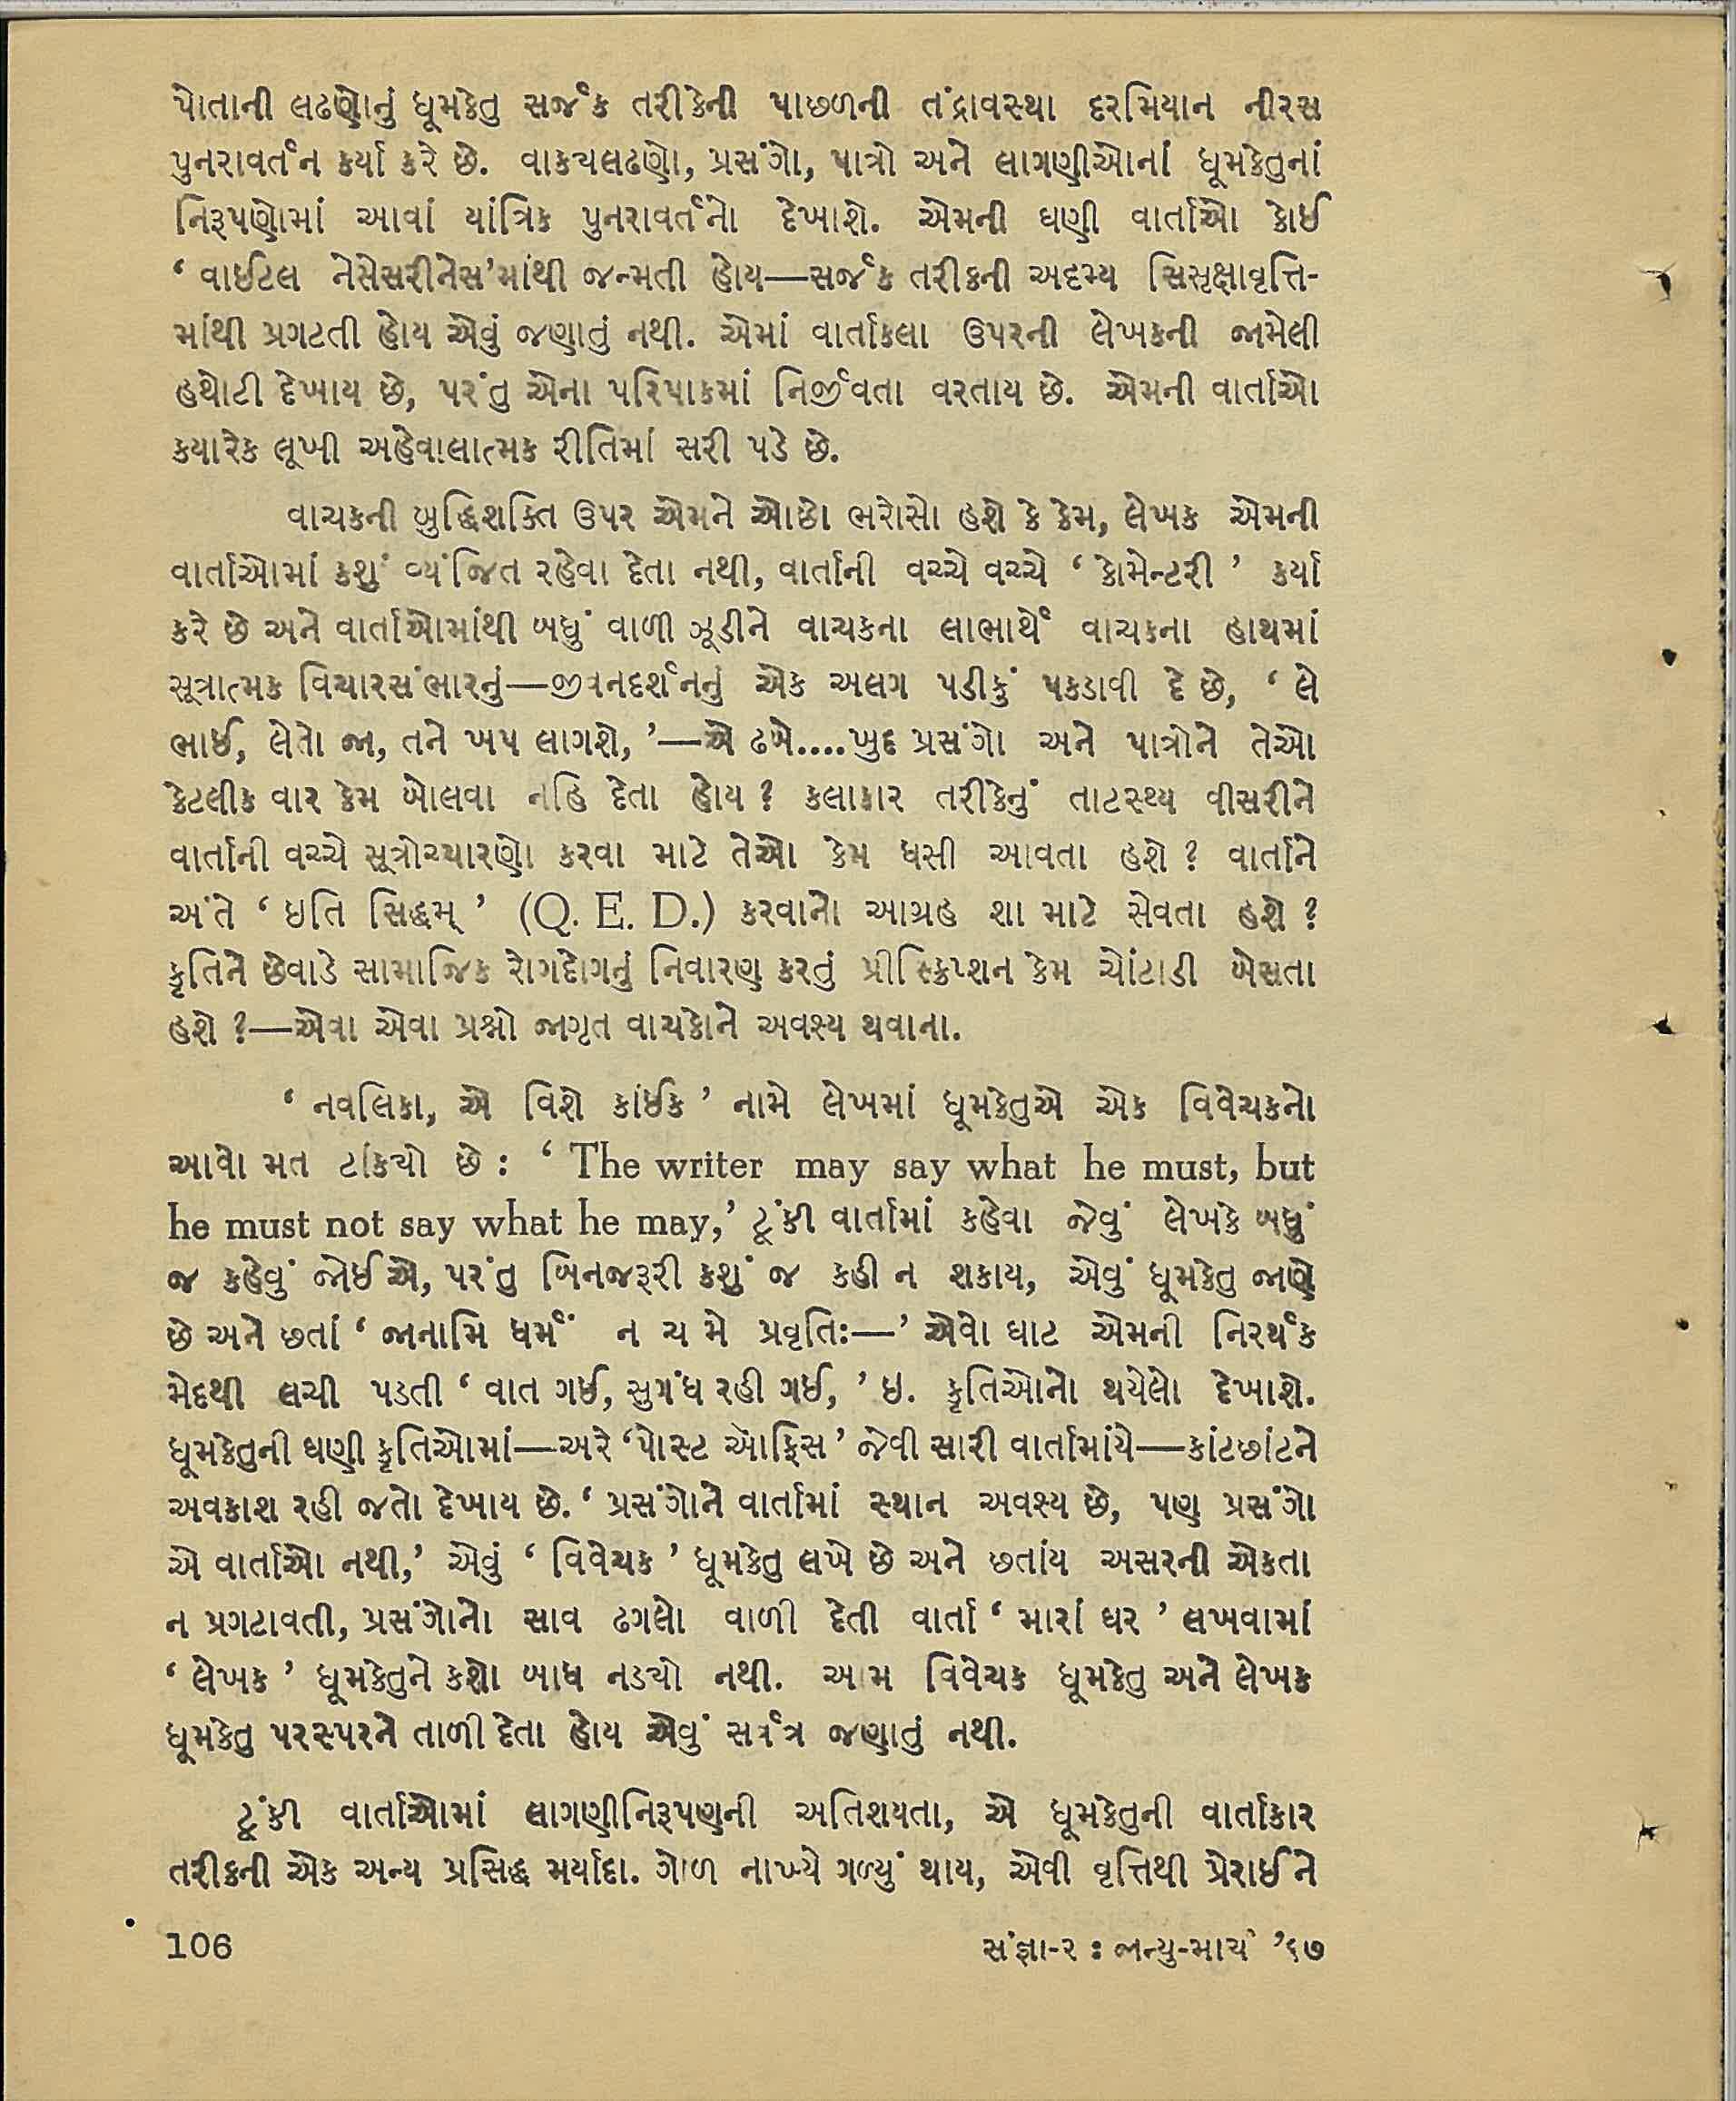 પોતાની લઢણોનું ધૂમકેતુ સર્જક તરીકેની પાછળની તંદ્રાવસ્થા દરમિયાન નીરસ
પુનરાવર્તન કર્યા કરે છે. વાક્યલઢણો, પ્રસંગો, પાત્રો અને લાગણીઓનાં ધૂમકેતુનાં
નિરૂપણોમાં આવાં યાંત્રિક પુનરાવર્તનો દેખાશે. એમની ઘણી વાર્તાઓ કોઈ
‘ વાઈટિલ નેસેસરીનેસ’માંથી જન્મતી હોય—સર્જક તરીકની અદમ્ય સિસૃક્ષાવૃત્તિ-
માંથી પ્રગટતી હોય એવું જણાતું નથી. એમાં વાર્તાકલા ઉપરની લેખકની જામેલી
હથોટી દેખાય છે, પરંતુ એના પરિપાકમાં નિર્જીવતા વરતાય છે. એમની વાર્તાઓ
કયારેક લૂખી અહેવાલાત્મક રીતિમાં સરી પડે છે.
વાચકની બુદ્ધિશક્તિ ઉપર એમને ઓછો ભરોસો હશે કે કેમ, લેખક એમની
વાર્તાઓમાં કશું વ્યંજિત રહેવા દેતા નથી, વાર્તાની વચ્ચે વચ્ચે ‘ કોમેન્ટરી ’ કર્યા
કરે છે અને વાર્તાઓમાંથી બધું વાળી ઝૂડીને વાચકના લાભાર્થે વાચકના હાથમાં
સૂત્રાત્મક વિચારસંભારનું—જીવનદર્શનનું એક અલગ પડીકું પકડાવી દે છે, ‘ લે
ભાઈ, લેતો જા, તને ખપ લાગશે, ’—એ ઢબે....ખુદ પ્રસંગો અને પાત્રોને તેઓ
કેટલીક વાર કેમ બોલવા નહિ દેતા હોય ? કલાકાર તરીકેનું તાટસ્થ્ય વીસરીને
વાર્તાની વચ્ચે સૂત્રોચ્ચારણો કરવા માટે તેઓ કેમ ધસી આવતા હશે ? વાર્તાને
અંતે ‘ ઇતિ સિદ્ધમ્ ’ (Q. E. D.) કરવાનો આગ્રહ શા માટે સેવતા હશે ?
કૃતિને છેવાડે સામાજિક રોગદોગનું નિવારણ કરતું પ્રીસ્ક્રિપ્શન કેમ ચોંટાડી બેસતા
હશે ?—એવા એવા પ્રશ્નો જાગૃત વાચકોને અવશ્ય થવાના.
‘ નવલિકા, એ વિશે કાંઈક ’ નામે લેખમાં ધૂમકેતુએ એક વિવેચકનો
આવો મત ટાંક્યો છે : ‘ The writer may say what he must, but
he must not say what he may,’ ટૂંકી વાર્તામાં કહેવા જેવું લેખકે બધું
જ કહેવું જોઈએ, પરંતુ બિનજરૂરી કશું જ કહી ન શકાય, એવું ધૂમકેતુ જાણે
છે અને છતાં ‘ જાનામિ ધર્મં ન ચ મે પ્રવૃતિઃ—’ એવો ઘાટ એમની નિરર્થક
મેદથી લચી પડતી ‘ વાત ગઈ, સુગંધ રહી ગઈ, ’ ઇ. કૃતિઓનો થયેલો દેખાશે.
ધૂમકેતુની ઘણી કૃતિઓમાં—અરે ‘પોસ્ટ ઑફિસ ’ જેવી સારી વાર્તામાંયે—કાંટછાંટને
અવકાશ રહી જતો દેખાય છે. ‘ પ્રસંગોને વાર્તામાં સ્થાન અવશ્ય છે, પણ પ્રસંગો
એ વાર્તાઓ નથી,’ એવું ‘ વિવેચક ’ ધૂમકેતુ લખે છે અને છતાંય અસરની એકતા
ન પ્રગટાવતી, પ્રસંગોનો સાવ ઢગલો વાળી દેતી વાર્તા ‘ મારાં ઘર ’ લખવામાં
‘ લેખક ’ ધૂમકેતુને કશો બાધ નડ્યો નથી. આમ વિવેચક ધૂમકેતુ અને લેખક
ધૂમકેતુ પરસ્પરને તાળી દેતા હોય એવું સર્વત્ર જણાતું નથી.
ટૂંકી વાર્તાઓમાં લાગણીનિરૂપણની અતિશયતા, એ ધૂમકેતુની વાર્તાકાર
તરીકની એક અન્ય પ્રસિદ્ધ મર્યાદા. ગોળ નાખ્યે ગળ્યું થાય, એવી વૃત્તિથી પ્રેરાઈને
106
સંજ્ઞા-૨ : જાન્યુ-માર્ચ ’૬૭